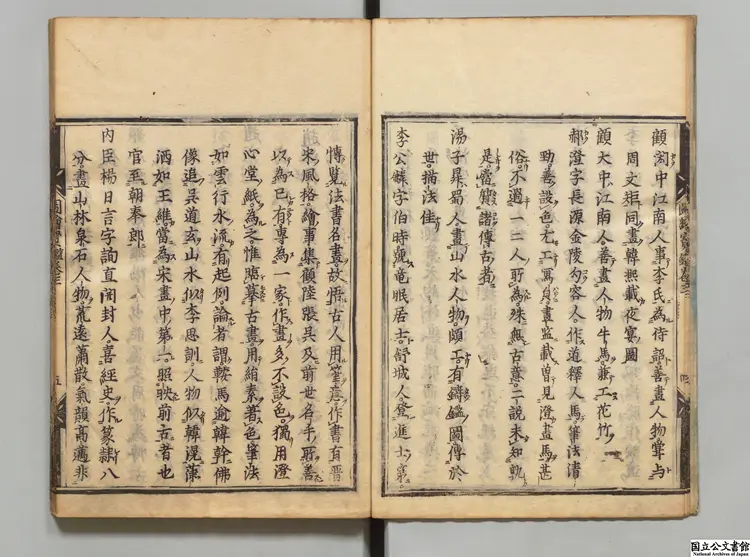 顧閎中江南人事李氏為待詔善畫人物常与
周文矩同畫韓熙載夜宴圖
顧大中江南人善畫人物牛馬兼工花竹
郝澄字長源金陵勾容人作道釋人馬筆法清
勁善設色尤工寫貞畫鉴載曽見澄畫馬甚
俗不過一二人所為殊無古意二說未知孰
是當竢諸傳古者
湯子昇蜀人畫山水人物頗工有鑄鑑圖傳於
世描法佳
李公麟字伯時號竜眠居士舒城人登進士第
博覧法書名畫故悟古人用筆意作書有晋
宋風格繪事集顧陸張吳及前世名手所善
以為已有專為一家作畫多不設色獨用澄
心堂紙為之惟臨摹古畫用絹素著色筆法
如雲行水流有起例論者謂鞍馬逾韓幹佛
像追吳道玄山水似李思訓人物似韓滉蕭
洒如王維當為宋畫中第一照映前古者也
官至朝奉郎
内臣楊日言字詢直開封人喜經史作篆隷八
分畫山林泉石人物荒遠蕭散氣韻高邁非
圖繪寳鑑卷三
四
圖繪寳鑑卷三
五
国立公文書館
National Archives of Japan